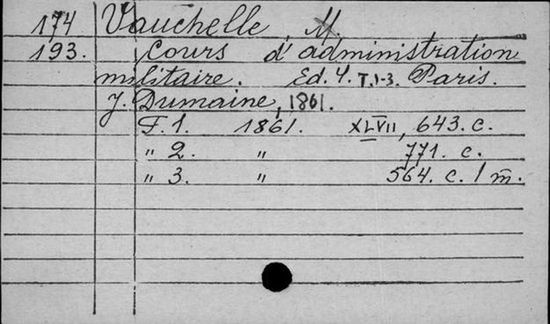 174 Vauchelle, M.
193. Cours d'administration
militaire. Ed. 4. T. 1-3. Paris.
J. Dumaine, 1861.
T. 1. 1861. XLVII, 643. c.
" 2. " 771. c.
" 3. " 564. c. 1 m.